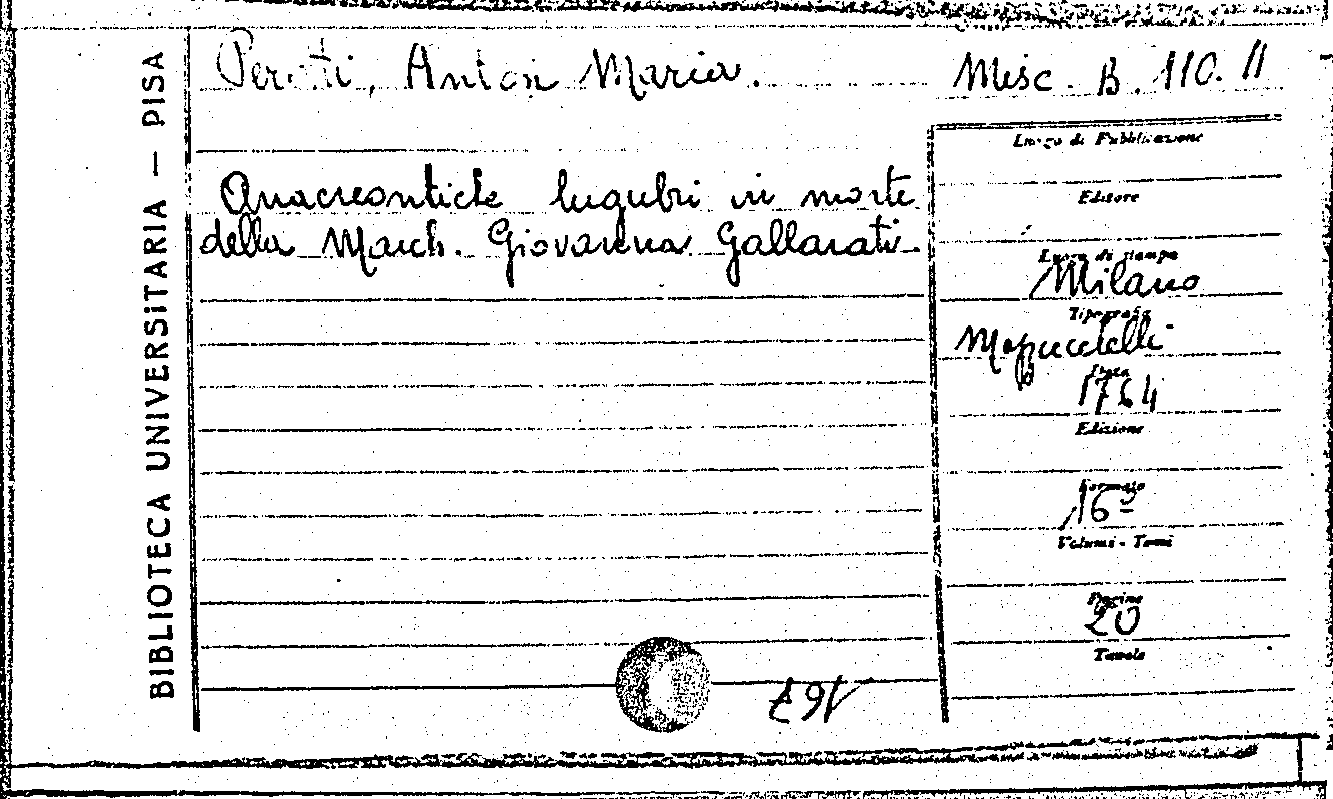 BIBLIOTECA UNIVERSITARIA — PISA
Anton Maria.
Misc. B. 110. 11
Anacreontiche lugubri in morte
della March. Giovanna Gallarati.
Luogo di Pubblicazione
Editore
Luogo di stampa
Milano
Tipografia
Data
Edizione
Formato
16º
Volumi - Tomi
Pagine
20
Tavole